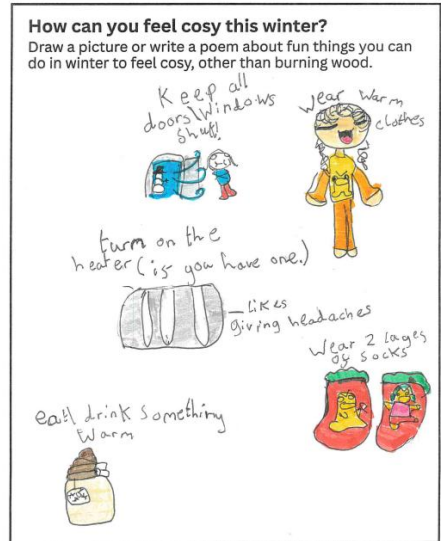 How can you feel cosy this winter?
Draw a picture or write a poem about fun things you can
do in winter to feel cosy, other than burning wood.
Keep all
doors\windows
shut!
wear warm
clothes
turn on the
heater (is you have one.)
— likes
giving headaches
Wear 2 lages
of socks
eat\ drink something
warm